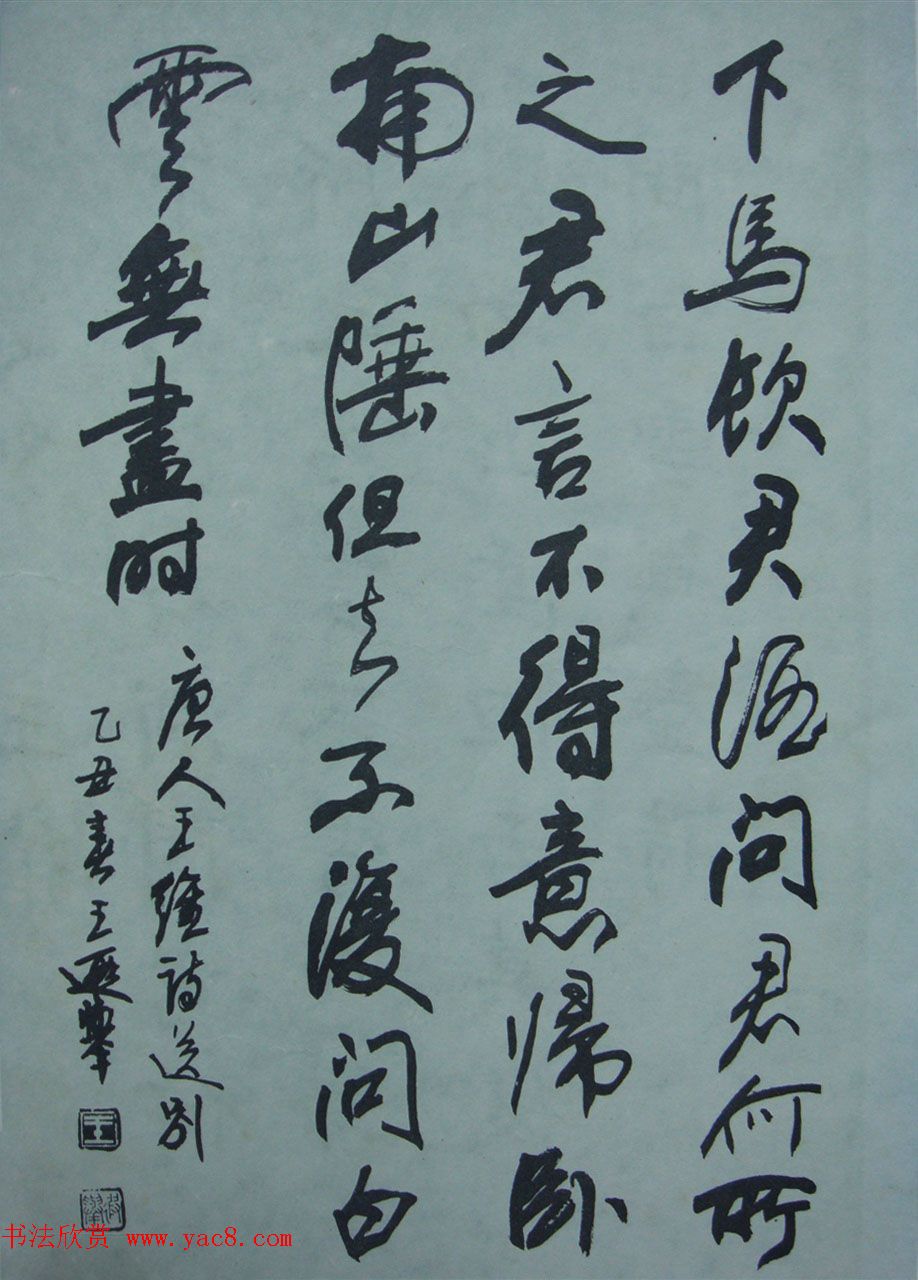 下馬飲君酒問君何所
之君言不得意歸臥
南山陲但去不復問白
雲無盡时
唐人王維詩送別
乙丑春王遐舉
王
书法欣赏 www.yac8.com